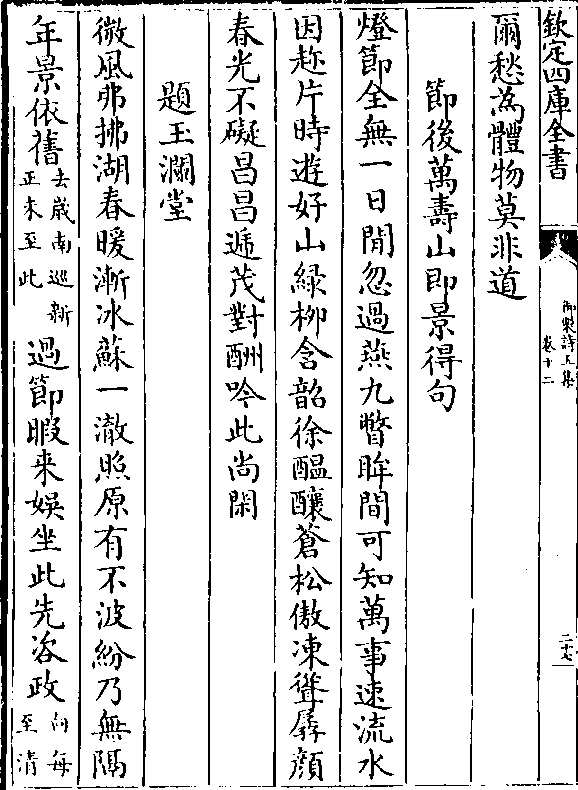 欽定四庫全書
御製詩五集
卷十二
二十七
爾愁為體物莫非道
節後萬壽山即景得句
燈節全無一日閒忽過燕九瞥眸間可知萬事速流水
因趂片時遊好山緑柳含韶徐醖釀蒼松傲凍聳孱顔
春光不礙昌昌遞茂對酬吟此尚閑
題玉瀾堂
微風弗拂湖春暖漸冰蘇一澈照原有不波紛乃無隔
年景依舊去歲南廵新正未至此過節暇来娛坐此先咨政向每至清